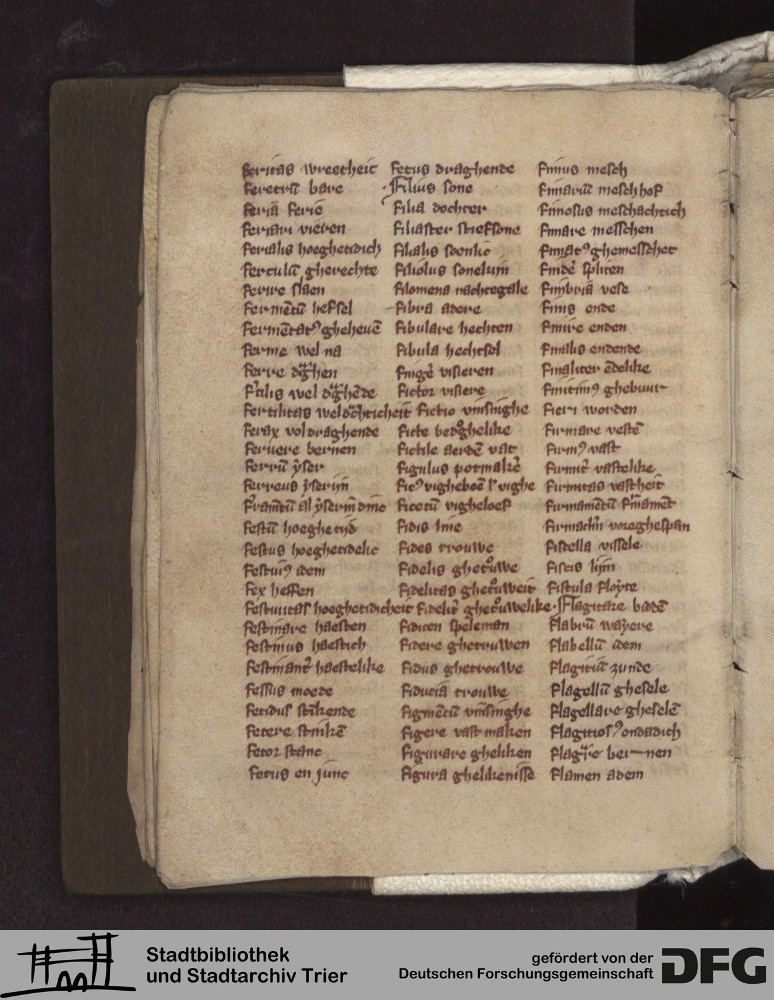 feritas wreetheit
feretrū bare
feria ferie
feriari vieren
ferialis hoeghetidich
ferculū gherechte
ferire slaen
fermētū hefsel
fermētatꝰ gheheuē
ferme wel na
ferre dͣghen
fͬtilis wel dͣghēde
fertilitas wel dͣchticheit
ferax vol draghende
feruere bernen
ferrū ẏser
ferreus ẏserijn
festū hoeghetijd
festus hoeghetidelic
festiuꝰ idem
fex heffen
festiuitas hoeghetidicheit
festinare haesten
festinus haestich
festinant͛ haestelike
fessus moede
fetidus stīkende
fetere stinkē
fetor stanc
fetus en junc
fetus draghende
filius sone
filia dochter
filiaster stiefsone
filialis soenlic
filiolus sonekijn
filomena nachtegale
fibra adere
fibulare hechten
fibula hechtsel
fing͛e visieren
fictor visiere
fictio vinsinghe
ficte bedͦghelike
fictile aerdē vat
figulus potmak͛e
ficꝰ vigheboē l' vighe
ficetū vigheloef
fidis lnie
fides trouwe
fidelis ghetͦuwe
fidelitas ghetͦuweit
fidelit͛ ghetͦuwelike
fidicen speleman
fidere ghetruwen
fidus ghetrouwe
fiducia trouwe
figmētū vinsinghe
figere vast maken
figurare ghelikken
figura ghelikenisse
fimus mesch
fimariū meschhof
fimosus meschachtich
fimare messchen
fimatꝰ ghemesschet
find͛e spliten
fimbria vese
finis ende
finire enden
finalis endende
finaliter ēdelike
finitimꝰ ghebuur
fieri worden
firmare vestē
firmꝰ vast
firmit͛ vastelike
firmitas vastheit
firmamētū firmamēt
fistella vissele
fiscis lijm
fistula floyte
flagitare biddē
flabrū wayere
flabellū idem
flagitiū zunde
flagellū ghesele
flagellare gheselē
flagitiosꝰ ondadich
flagͬre bernen
flamen adem
Stadtbibliothek
und Stadtarchiv Trier
gefördert von der
Deutschen Forschungsgemeinschaft
DFG